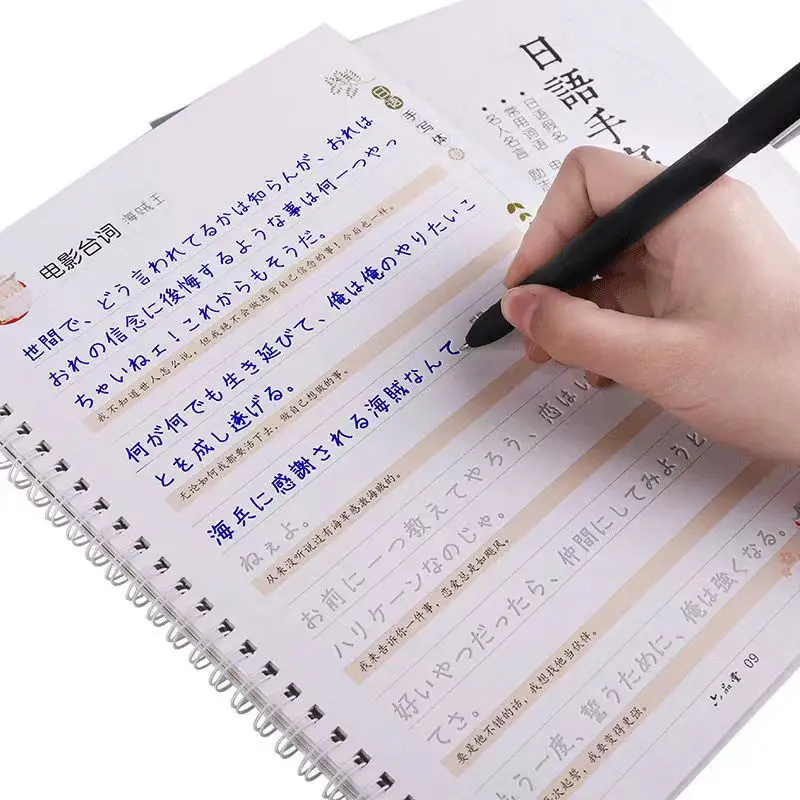 日語手
日语假名
常用词语
名人名言
日语
手写体
电影台词 海贼王
世間で、どう言われてるかは知らんが、おれは
おれの信念に後悔するような事は何一つやっ
ちゃいねェ!これからもそうだ。
我不知道世人怎么说，但我绝不会做违背自己信念的事!今后也一样。
何が何でも生き延びて、俺は俺のやりたいこ
とを成し遂げる。
无论如何我都要活下去，做自己想做的事。
海兵に感謝される海賊なんて
ねぇよ。
从来没听说过有海军感激海贼的。
お前に一つ教えてやろう、恋はい
ハリケーンなのじゃ。
我来告诉你一件事，恋爱总是如飓风。
好いやつだったら、仲間にしてみようと
てさ。
要是他不错的话，我想找他当伙伴。
もう一度、誓うために、俺は強くなる。
次起誓，我要变得更强。
六品堂 09